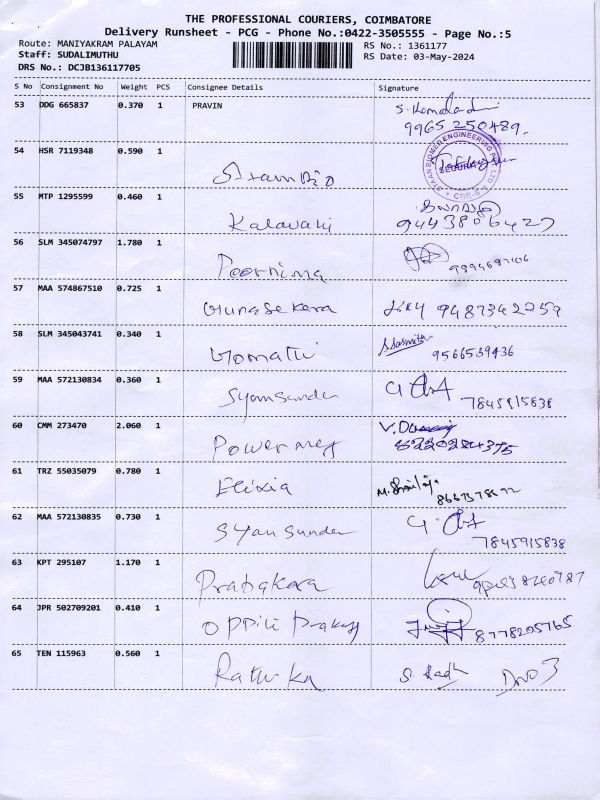 THE PROFESSIONAL COURIERS, COIMBATORE
Delivery Runsheet - PCG - Phone No.:0422-3505555 - Page No.:5
Route: MANIYAKRAM PALAYAM
RS No.: 1361177
Staff: SUDALIMUTHU
RS Date: 03-May-2024
DRS No.: DCJB136117705
S No Consignment No Weight PCS Consignee Details Signature
53 DDG 665837 0.370 1 PRAVIN
9965 250489.
54 HSR 7119348 0.590 1
55 MTP 1295599 0.460 1 Kalavani
9443806427
56 SLM 345074797 1.780 1 Poornima
57 MAA 574867510 0.725 1 Gunasekara 9487342259
58 SLM 345043741 0.340 1 Gomathi
9566539436
59 MAA 572130834 0.360 1 Syamsunder
7845915838
60 CMM 273470 2.060 1
61 TRZ 55035079 0.780 1 Elixia
62 MAA 572130835 0.730 1 Syamsunder
7845915838
63 KPT 295107 1.170 1 Prabakara
64 JPR 502709201 0.410 1 8778205765
65 TEN 115963 0.560 1